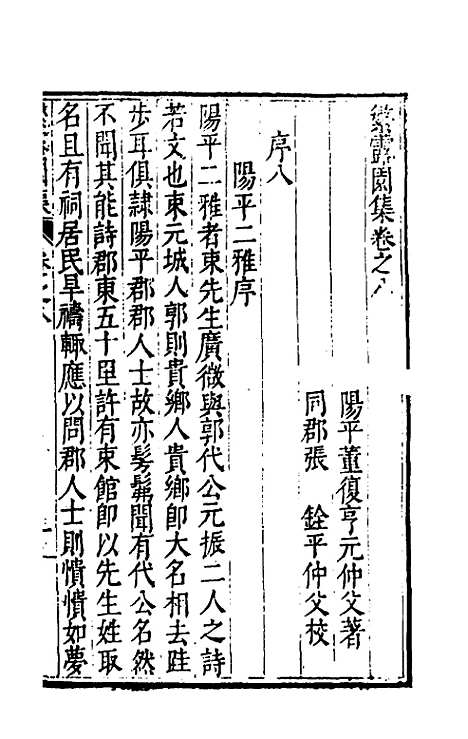 繁露園集卷之八
陽平董復亨元仲父著
同郡張　銓平仲父校
序八
陽平二雅序
陽平二雅者束先生廣微與郭代公元振二人之詩
若文也束元城人郭則貴鄉人貴鄉即大名相去跬
步耳俱隷陽平郡郡人士故亦髣髴聞有代公名然
不聞其能詩郡東五十里許有束館即以先生姓取
名且有祠居民旱禱輒應以問郡人士則憒憒如夢